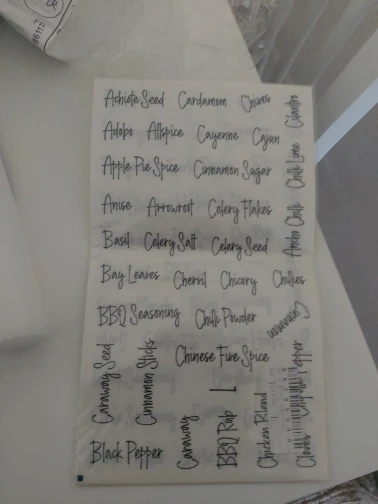 Achiote Seed Cardamom Chives
Cilantro
Adobo Allspice Cayenne Cajun
Apple Pie Spice Cinnamon Sugar
Chili Lime
Anise Arrowroot Celery Flakes
Ancho Chili
Basil Celery Salt Celery Seed
Bay Leaves Chervil Chicory Chilies
BBQ Seasoning Chili Powder
Cinnamon
Chinese Five Spice
Caraway Seed
Cinnamon Sticks
Black Pepper
Caraway
BBQ Rub
Chicken Bland
Cloves
Pepper